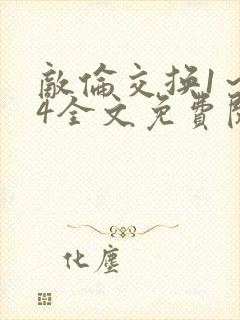 敵倫交換1～
4全文免費閱
化塵